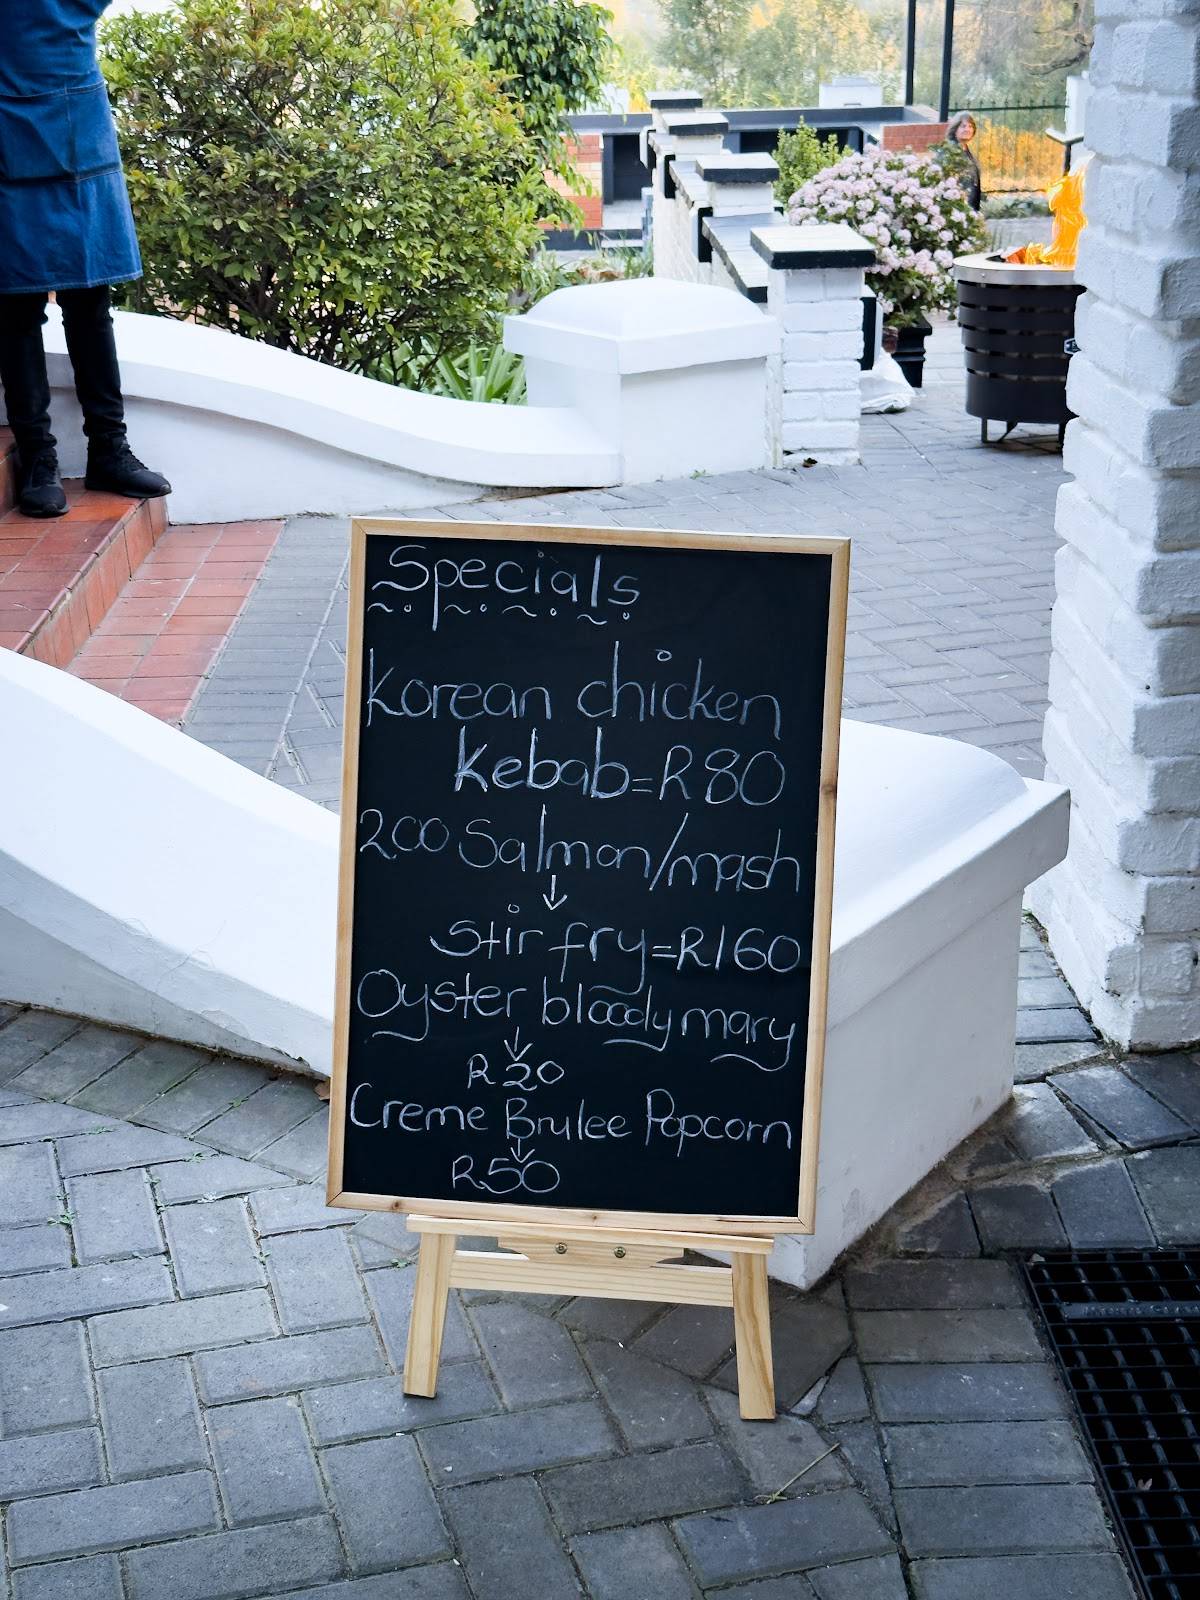 Specials
Korean chicken
kebab=R80
200 Salmon/mash
↓
Stir fry=R160
Oyster bloody mary
↓
R20
Creme Brulee Popcorn
↓
R50